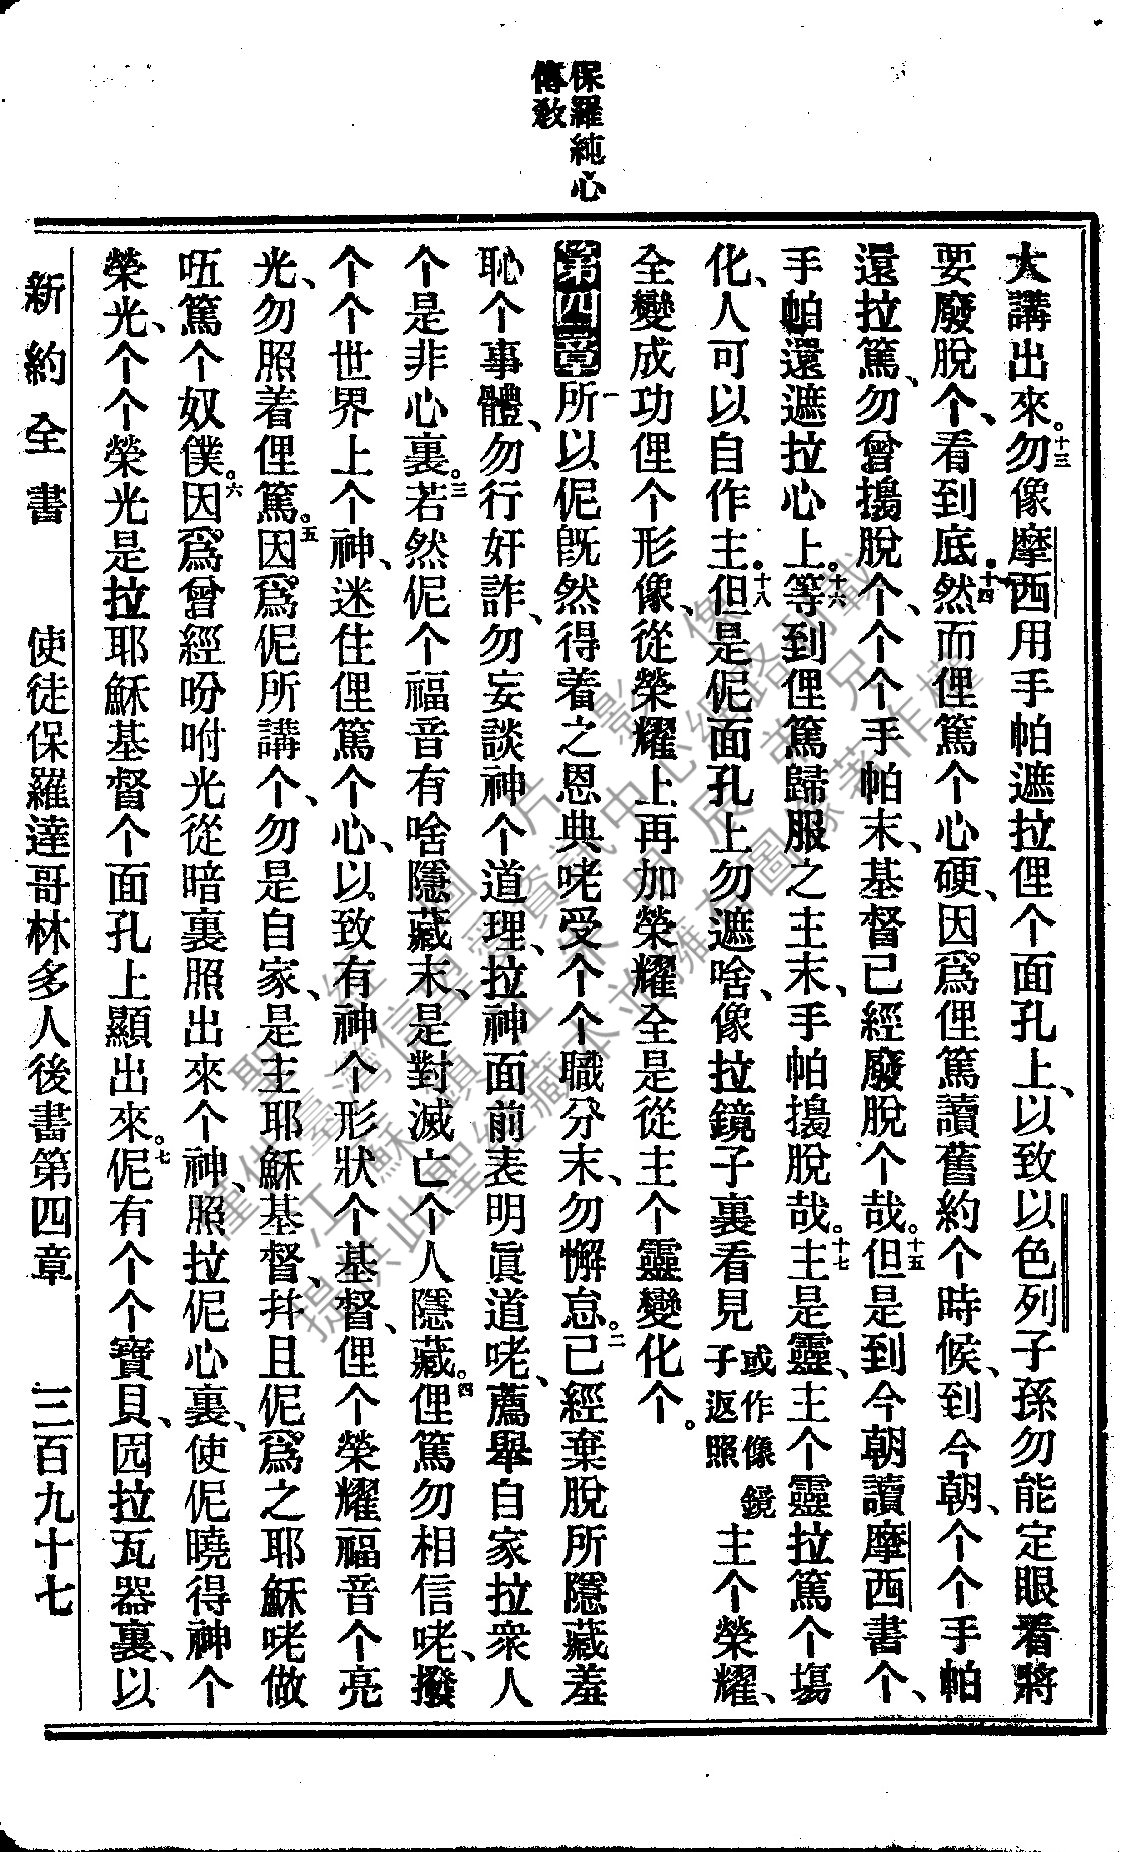 保羅純心
傳敎
大講出來。十三勿像摩西用手帕遮拉俚个面孔上、以致以色列子孫勿能定眼看將
要廢脫个、看到底。十四然而俚篤个心硬、因爲俚篤讀舊約个時候、到今朝、个个手帕
還拉篤、勿曾搨脫个、个个手帕末、基督已經廢脫个哉。十五但是到今朝讀摩西書个、
手帕還遮拉心上。十六等到俚篤歸服之主末、手帕搨脫哉。十七主是靈、主个靈拉篤个塲
化、人可以自作主。十八但是伲面孔上勿遮啥、像拉鏡子裏看見或作像鏡子返照主个榮耀、
全變成功俚个形像、從榮耀上再加榮耀全是從主个靈變化个。
第四章一所以伲旣然得着之恩典咾受个个職分末、勿懈怠。二已經棄脫所隱藏羞
恥个事體、勿行奸詐、勿妄談神个道理、拉神面前表明眞道咾、薦舉自家拉衆人
个是非心裏。三若然伲个福音有啥隱藏末、是對滅亡个人隱藏。四俚篤勿相信咾、撥
个个世界上个神、迷住俚篤个心、以致有神个形狀个基督、俚个榮耀福音个亮
光、勿照着俚篤。五因爲伲所講个、勿是自家、是主耶穌基督、幷且伲爲之耶穌咾做
㕶篤个奴僕。六因爲曾經吩咐光從暗裏照出來个神、照拉伲心裏、使伲曉得神个
榮光、个个榮光是拉耶穌基督个面孔上顯出來。七伲有个个寶貝、园拉瓦器裏、以
新約全書 使徒保羅達哥林多人後書第四章 三百九十七